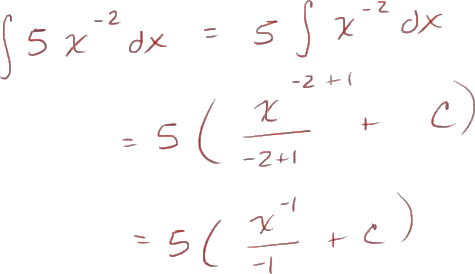 ∫ 5 x⁻² dx = 5 ∫ x⁻² dx
= 5 ( x⁻²⁺¹ / -2+1 + C )
= 5 ( x⁻¹ / -1 + C )